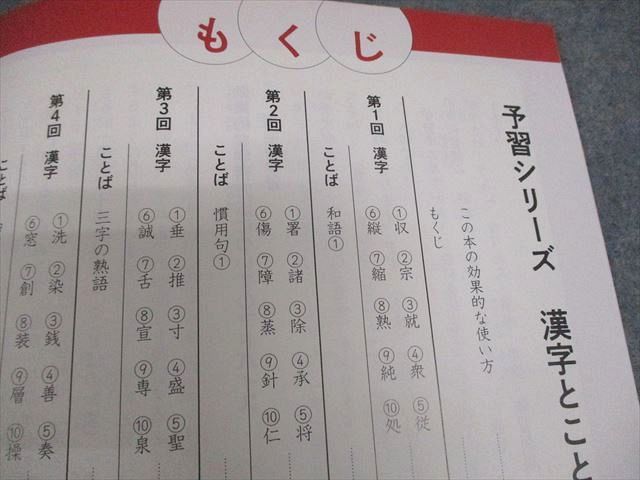 もくじ
予習シリーズ 漢字とこと
この本の効果的な使い方
もくじ
第1回 漢字 ①収 ②宗 ③就 ④衆 ⑤従
⑥縦 ⑦縮 ⑧熟 ⑨純 ⑩処
ことば 和語①
第2回 漢字 ①署 ②諸 ③除 ④承 ⑤将
⑥傷 ⑦障 ⑧蒸 ⑨針 ⑩仁
ことば 慣用句①
第3回 漢字 ①垂 ②推 ③寸 ④盛 ⑤聖
⑥誠 ⑦舌 ⑧宣 ⑨専 ⑩泉
ことば 三字の熟語
第4回 漢字 ①洗 ②染 ③銭 ④善 ⑤奏
⑥窓 ⑦創 ⑧装 ⑨層 ⑩操
ことば